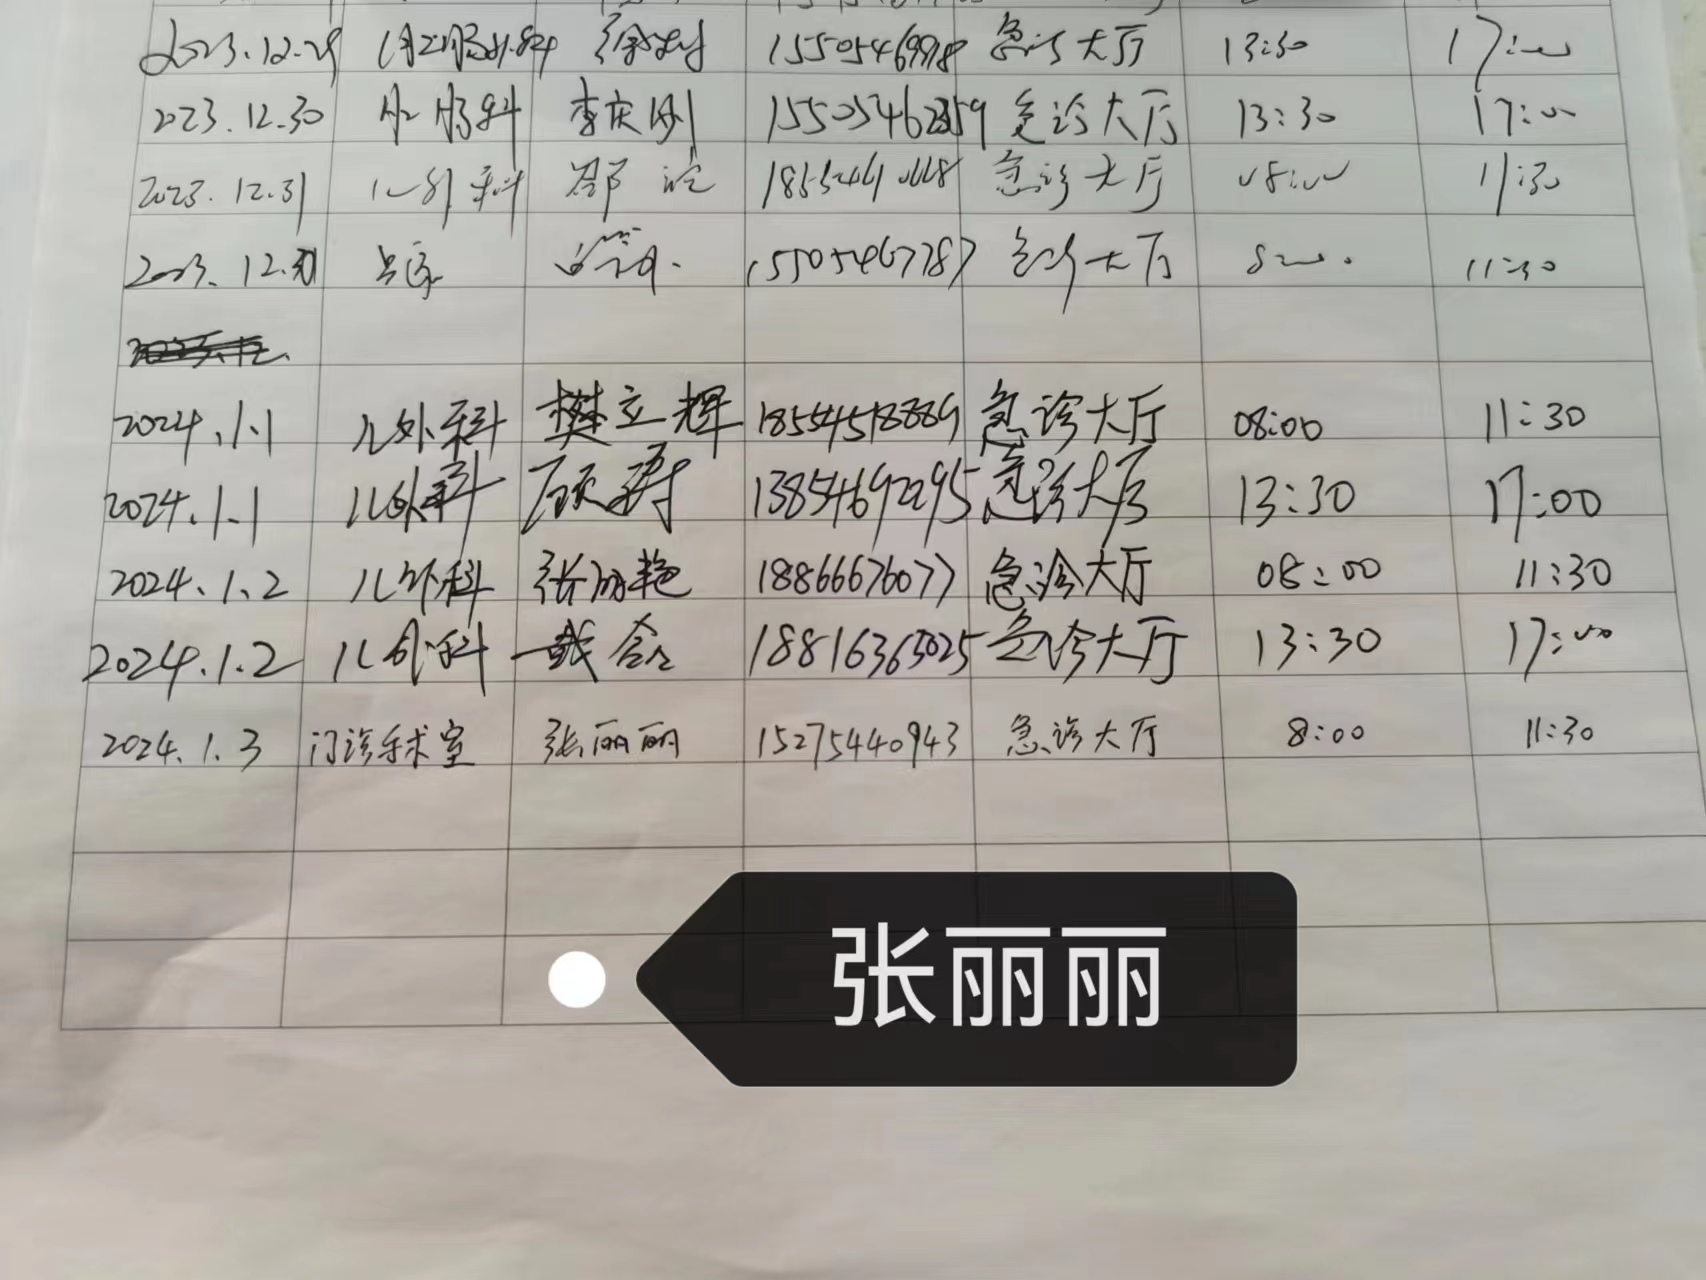 2023.12.29 15505469918 急诊大厅 13:30 17:00
2023.12.30 李庆刚 急诊大厅 13:30 17:00
2023.12.31 儿外科 急诊大厅 08:00 11:30
2023.12.31 15505467787 急诊大厅 8:00 11:30
2024.1.1 儿外科 樊立辉 18554518889 急诊大厅 08:00 11:30
2024.1.1 儿外科 13854692295 急诊大厅 13:30 17:00
2024.1.2 儿外科 张丽艳 18866676077 急诊大厅 08:00 11:30
2024.1.2 儿外科 18816363025 急诊大厅 13:30 17:00
2024.1.3 门诊手术室 张丽丽 15275440943 急诊大厅 8:00 11:30
张丽丽